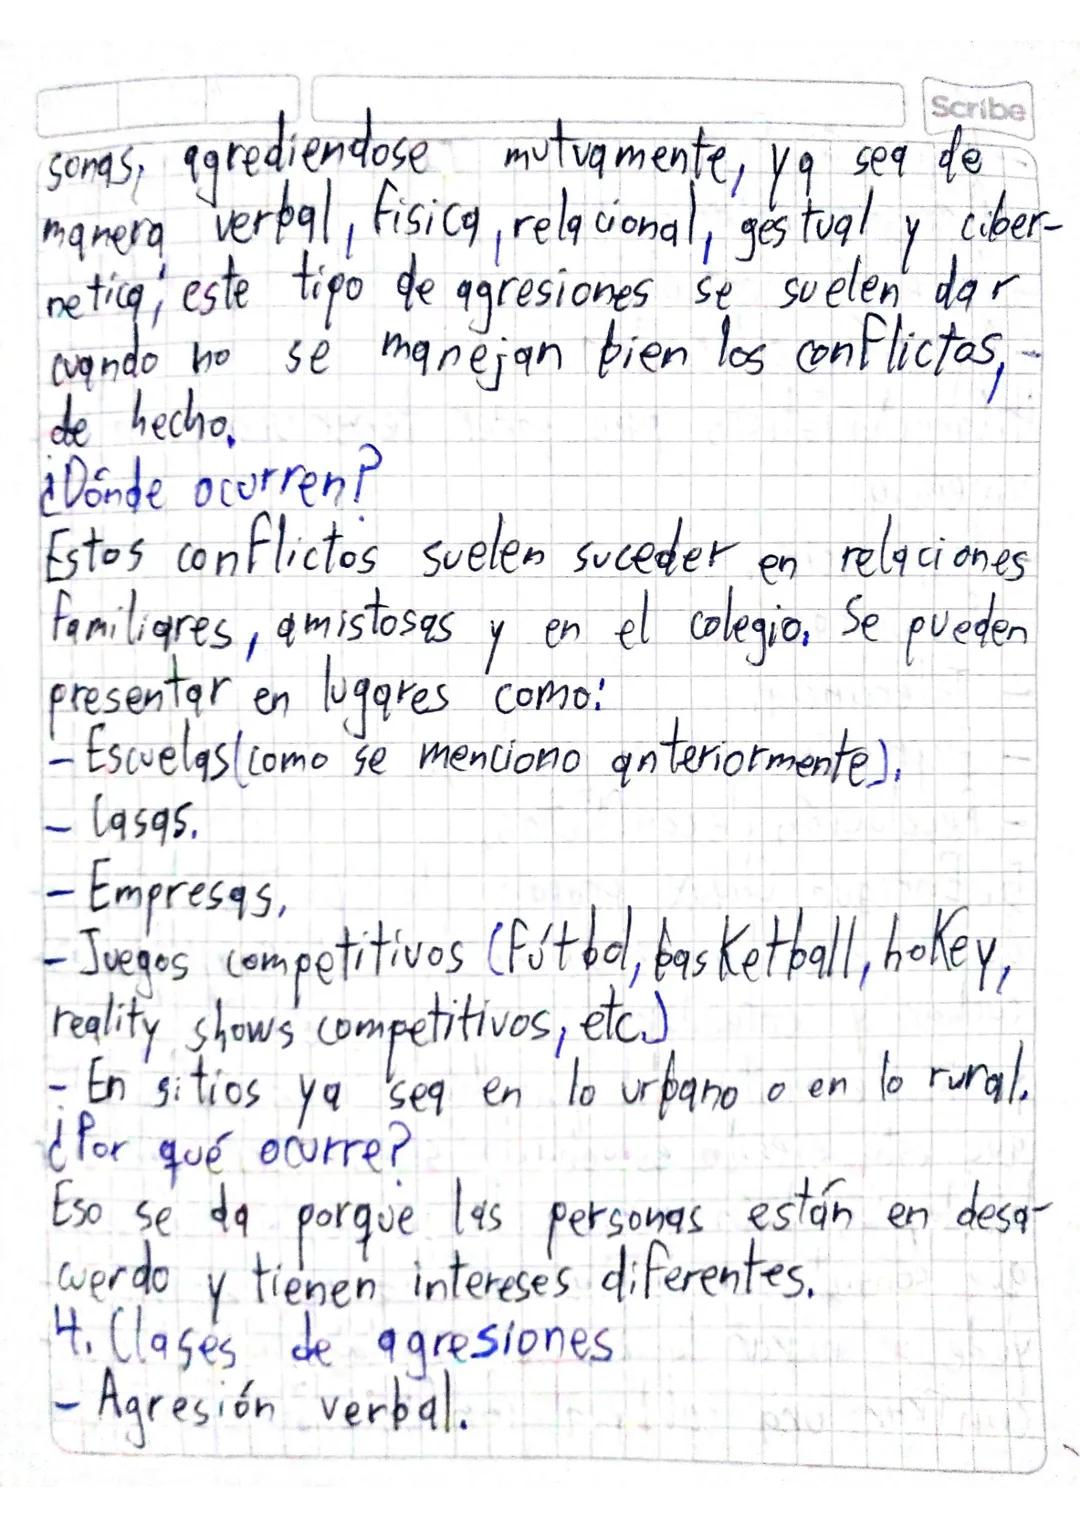 Scribe
sonas, agrediendose mutuamente, ya sea de
manera verbal, fisica, relacional, gestual y ciber-
netica; este tipo de agresiones se suelen dar
cuando no se manejan bien los conflictos,
de hecho.
¿Dónde ocurren?
Estos conflictos suelen suceder en relaciones
familiares, amistosas y en el colegio. Se pueden
presentar en lugares como:
- Escuelas (como se menciono anteriormente).
- Casas.
- Empresas.
- Juegos competitivos (fútbol, basketball, hokey,
reality shows competitivos, etc.)
- En sitios ya sea en lo urbano o en lo rural.
¿Por qué ocurre?
Eso se da porque las personas están en desa-
cuerdo y tienen intereses diferentes.
4. Clases de agresiones
- Agresión verbal.